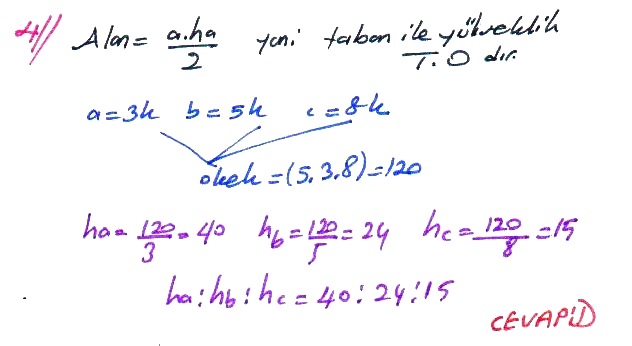 4// Alan = a.ha/2 yani taban ile yükseklik T.O dır.
a=3k b=5k c=8k
okek=(5.3.8)=120
ha=120/3=40 hb=120/5=24 hc=120/8=15
ha:hb:hc=40:24:15
CEVAP:D